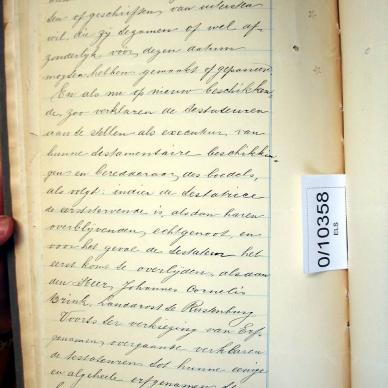 sten of geschriften, van uitersten
wil die zij tezamen of wel af-
zonderlijk voor dezen datum
mogten hebben gemaakt of gepasseerd.
En als nu op nieuw beschikken-
de, zoo verklaren de testateuren
aan te stellen als executeur, van
hunne testamentaire beschikkin-
gen en beredderaar des boedels,
als volgt: indien de testatrice
de eerststervende is, alsdan haren
overblijvenden echtgenoot, en
voor het geval de testateur het
eerst komt te overlijden, alsdan
den Heer, Johannes Cornelis
Brink, Landdrost te Rustenburg
Voorts ter verkiezing van Erf-
genamen, overgaande verklaren
de testateuren tot hunne eenige
en algeheele erfgenamen te
0/10358
ELS